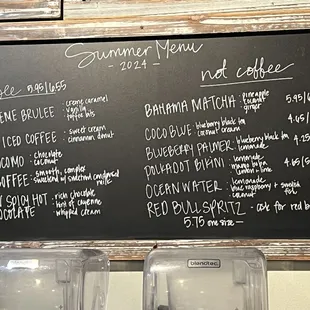 Summer Menu
- 2024 -
5.95/6.55
EME BRULEE : creme caramel
vanilla
toffee bits
ICED COFFEE : sweet cream
cinnamon donut
COMO : chocolate
coconut
COFFEE : smooth, complex
sweetened w/ sweetened condensed
milk
SPICY HOT : rich chocolate
hint of cayenne
whipped cream
OCOLATE
not coffee
BAHAMA MATCHA : pineapple
coconut
ginger
5.95/6
COCO BLUE : blueberry black tea
coconut cream
4.65/
BLUEBERRY PALMER : blueberry black tea
lemonade
4.25
POLKADOT BIKINI : lemonade
mango
lemon + lime
4.65/5
OCEAN WATER : lemonade
blue raspberry +
coconut
RED BULL SPRITZ - ask for red b
5.75 one size -
blendtec